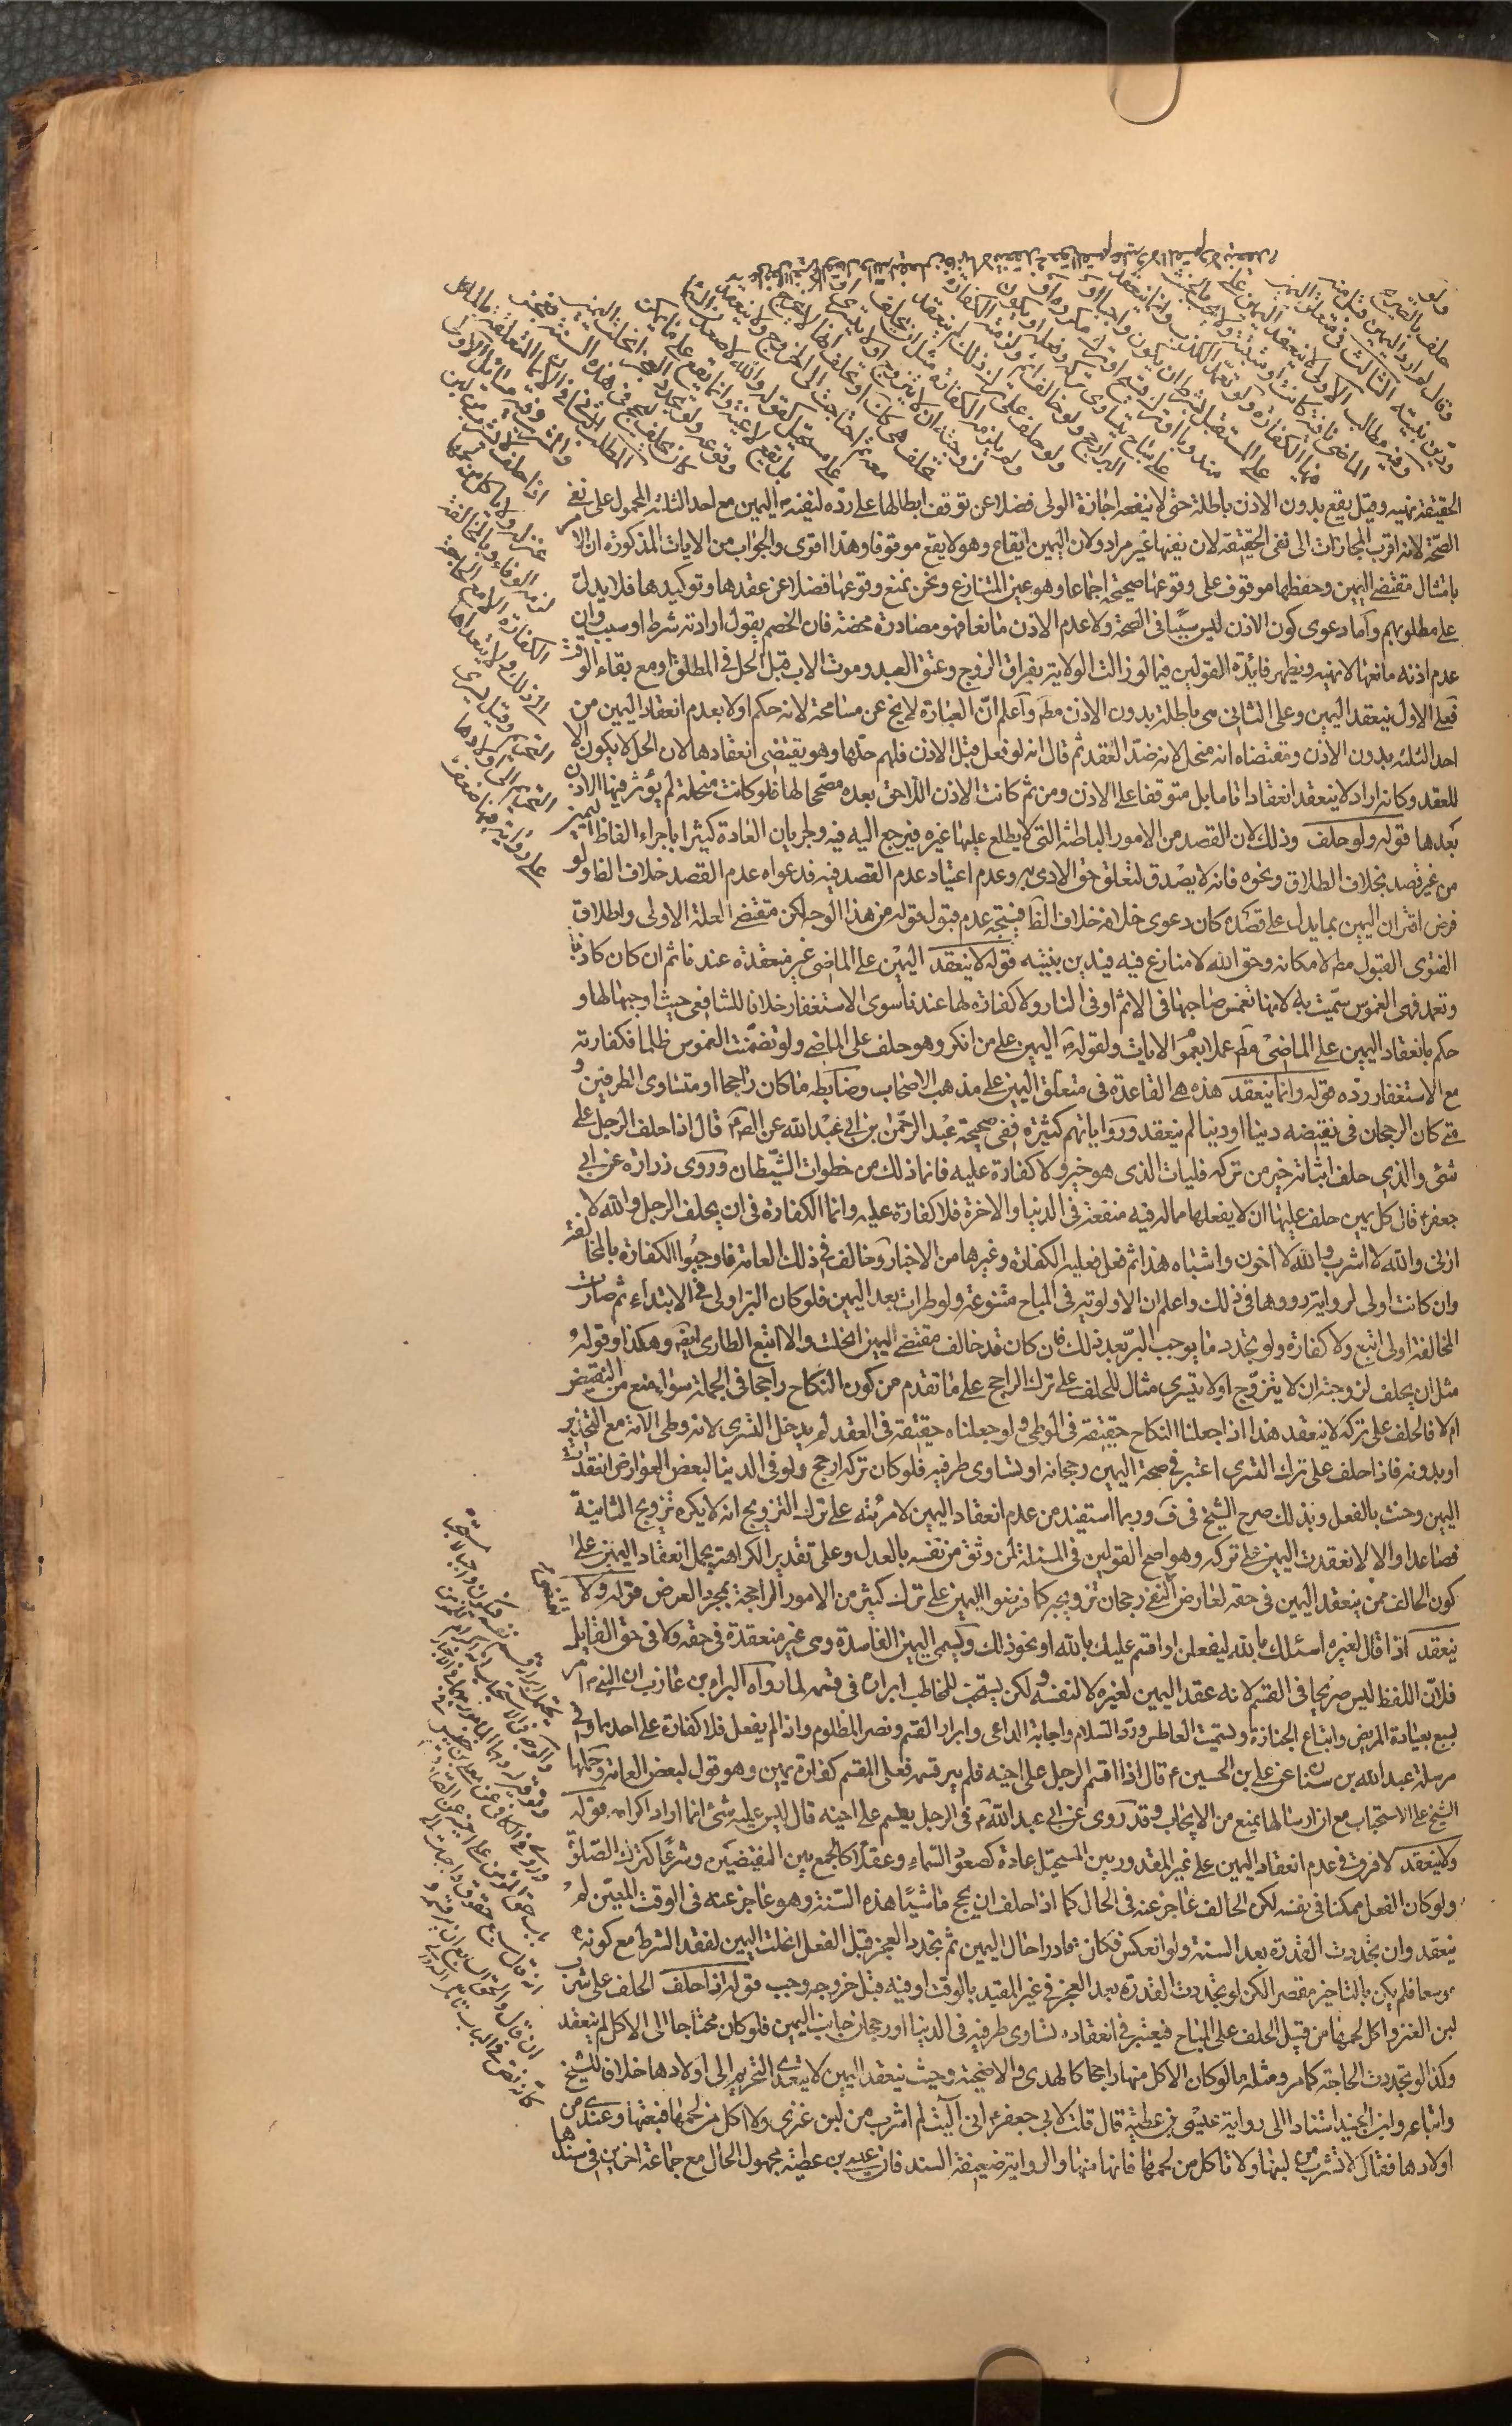 ولو
حلف بالصريح
وقال لم ارد اليمين قبل منه
ودين بنيته الثالث في متعلق اليمين
وفيه مطالب الاول لا ينعقد اليمين على
الماضي نافية كانت او مثبتة ولا يجب بالحنث
فيها الكفارة ولو تعمد الكذب وانما ينعقد
على المستقبل بشرط ان يكون واجبا او
مندوبا او ترك قبيح او ترك مكروه او
على مباح يتساوى فعله وتركه او يكون
البر ارجح ولو خالف اثم ولزمته الكفارة
ولو حلف على ترك ذلك لم ينعقد
ولم يلزمه الكفارة مثل ان يحلف
لزوجته ان لا يتزوج او لا يتسرى او
تحلف هي كذلك او تحلف انها لا تخرج
معه ثم احتاجت الى الخروج ولا ينعقد
على مستحيل كقوله والله لاصعدن السماء
بل يقع لاغية وانما يقع على ما يمكن
وقوعه ولو تجدد العجز انحلت اليمين
كان يحلف ليحج في هذه السنة فيعجز
المطلب الثاني في الايمان المتعلقة بالماكل
والمشرب وفيه مسائل الاولى
اذا حلف لا يشرب من لبن
عنز له ولا ياكل من لحمها
لزمه الوفاء وبالمخالفة
الكفارة الا مع الحاجة
الى ذلك ولا يتعداها
التحريم وقيل يسرى
التحريم الى اولادها
على رواية فيها ضعف
الحقيقة نهيه وقيل يقع بدون الاذن باطلة حتى لا ينفعه اجازة الولى فضلا عن توقف ابطالها على رده لنفيه اليمين مع احد الثلثة المحمول على نفى
الصحة لانه اقرب المجازات الى نفى الحقيقة لان نفيها غير مراد ولان اليمين ايقاع وهو لا يقع موقوفا وهذا اقوى والجواب من الايات المذكورة ان الامر
بامتثال مقتضى اليمين وحفظها موقوف على وقوعها صحيحة اجماعا وهو عين المتنازع ونحن نمنع وقوعها فضلا عن عقدها وتوكيدها فلا يدل
على مطلوبهم واما دعوى كون الاذن ليس سببا في الصحة ولا عدم الاذن مانعا فهو مصادرة محضة فان الخصم يقول ارادته شرط او سبب وان
عدم اذنه مانعها لا نهيه ويظهر فائدة القولين فيما لو زالت الولاية بفراق الزوج وعتق العبد وموت الاب قبل الحل في المطلق او مع بقاء الوقت
فعلى الاول ينعقد اليمين وعلى الثاني هي باطلة بدون الاذن مطم واعلم ان العبارة لا يخ عن مسامحة لانه حكم اولا بعدم انعقاد اليمين من
احد الثلثة بدون الاذن ومقتضاه انه منحل لانه ضد العقد ثم قال انه لو فعل قبل الاذن فلهم حلها وهو يقتضى انعقادها لان الحل لا يكون الا
للعقد وكانه اراد لا ينعقد انعقادا تاما بل متوقفا على الاذن ومن ثم كانت الاذن اللاحق بعده مصححا لها فلو كانت منحلة لم يؤثر فيها الاذن
بعدها قوله ولو حلف وذلك لان القصد من الامور الباطنة التي لا يطلع عليها غيره فيرجع اليه فيه ولجريان العادة كثيرا باجراء الفاظ اليمين
من غير قصد بخلاف الطلاق ونحوه فانه لا يصدق لتعلق حق الادمى به وعدم اعتياد عدم القصد فيه فدعواه عدم القصد خلاف الظ ولو
فرض اقتران اليمين بما يدل على قصده كان دعوى خلافه خلاف الظ فيتجه عدم قبول قوله من هذا الوجه لكن مقتضى العلة الاولى واطلاق
الفتوى القبول مطم لامكانه وحق الله لا منازع فيه فيدين بنيته قوله لا ينعقد اليمين على الماضي غير منعقدة عندنا ثم ان كان كاذبا
وتعمد فهى الغموس سميت به لانها تغمس صاحبها في الاثم او في النار ولا كفارة لها عندنا سوى الاستغفار خلافا للشافعى حيث اوجبها لها و
حكم بانعقاد اليمين على الماضى مطم عملا بعموم الايات ولقوله اليمين على من انكر وهو حلف على الماضي ولو تضمنت الغموس ظلما فكفارته
مع الاستغفار رده قوله وانما ينعقد هذه هي القاعدة في متعلق اليمين على مذهب الاصحاب وضابطه ما كان راجحا او متساوى الطرفين و
متى كان الرجحان في نقيضه دينا او دنيا لم ينعقد ورواياتهم كثيرة ففي صحيحة عبد الرحمن بن ابي عبد الله عن الص قال اذا حلف الرجل على
شئ والذي حلف اتيانه خير من تركه فليات الذى هو خير ولا كفارة عليه فانما ذلك من خطوات الشيطان وروى زرارة عن ابي
جعفر قال كل يمين حلف عليها ان لا يفعلها مما له فيه منفعة في الدنيا والاخرة فلا كفارة عليه وانما الكفارة في ان يحلف الرجل والله لا
ازنى والله لا اشرب والله لا اخون واشباه هذا ثم فعل فعليه الكفارة وغيرها من الاخبار وخالف في ذلك العامة فاوجبوا الكفارة بالمخالفة
وان كانت اولى لرواية رووها في ذلك واعلم ان الاولوية في المباح متنوعة ولو طرات بعد اليمين فلو كان البر اولى في الابتداء ثم صارت
المخالفة اولى اتبع ولا كفارة ولو تجدد ما يوجب البر بعد ذلك فان كان قد خالف مقتضى اليمين انحلت والا اتبع الطارى ايضا وهكذا وقوله
مثل ان يحلف لزوجته ان لا يتزوج او لا يتسرى مثال للحلف على ترك الراجح على ما تقدم من كون النكاح راجحا في الجملة سواء منع من النقيض
ام لا فالحلف على تركه لا ينعقد هذا اذا جعلنا النكاح حقيقة في الوطى ولو جعلناه حقيقة في العقد لم يدخل التسرى لانه وطى الامة مع التخدير
او بدونه فاذا حلف على ترك التسرى اعتبر في صحة اليمين رجحانه او تساوى طرفيه فلو كان تركه ارجح ولو في الدنيا لبعض العوارض انعقدت
اليمين وحنث بالفعل وبذلك صرح الشيخ في ف وربما استفيد من عدم انعقاد اليمين لامرئته على ترك التزويج انه لا يكره تزويج الثانية
فصاعدا والا لانعقدت اليمين على تركه وهو اصح القولين في المسئلة لمن وثق من نفسه بالعدل وعلى تقدير الكراهة يحمل انعقاد اليمين على
كون الحالف ممن ينعقد اليمين في حقه لعارض اقتضى رجحان تزويجه كما فرضوا اليمين على ترك كثير من الامور الراجحة بمجرد العرض قوله ولا
ينعقد اذا قال لغيره اسئلك بالله ليفعلن او اقسم عليك بالله او نحو ذلك ويسمى اليمين الفاسدة وهى غير منعقدة في حقه ولا في حق القايل
فلان اللفظ ليس صريحا في القسم لانه عقد اليمين لغيره لا لنفسه ولكن يستحب للمخاطب ابراره في قسمه لما رواه البراء بن عازب ان النبي امر
بسبع بعيادة المريض واتباع الجنازة وتسميت العاطس ورد السلام واجابة الداعى وابرار القسم ونصر المظلوم واذا لم يفعل فلا كفارة على احدهما وفى
مرسلة عبد الله بن سنان عن على بن الحسين قال اذا اقسم الرجل على اخيه فلم يبر قسمه فعلى المقسم كفارة يمين وهو قول لبعض العامة وحملها
الشيخ على الاستحباب مع ان ارسالها يمنع من الايجاب وقد روى عن ابي عبد الله في الرجل يقسم على اخيه قال ليس عليه شئ انما اراد اكرامه قوله
ولا ينعقد لا فرق في عدم انعقاد اليمين على غير المقدور بين المستحيل عادة كصعود السماء وعقلا كالجمع بين النقيضين وشرعا كترك الصلوة
ولو كان الفعل ممكنا في نفسه لكن الحالف عاجز عنه في الحال كما اذا حلف ان يحج ماشيا هذه السنة وهو عاجز عنه في الوقت المعين لم
ينعقد وان تجددت القدرة بعد السنة ولو انعكس فكان قادرا حال اليمين ثم تجدد العجز قبل الفعل انحلت اليمين لفقد الشرط مع كونه
موسعا فلم يكن بالتاخير مقصرا لكن لو تجددت القدرة بعد العجز في غير المقيد بالوقت او فيه قبل خروجه وجب قوله اذا حلف الحلف على شرب
لبن العنز واكل لحمها من قبيل الحلف على المباح فيعتبر في انعقاده تساوى طرفيه في الدنيا او رجحان جانب اليمين فلو كان محتاجا الى الاكل لم ينعقد
وكذا لو تجددت الحاجة كما مر ومثله ما لو كان الاكل منها راجحا كالهدى والاضحية وحيث ينعقد اليمين لا يتعدى التحريم الى اولادها خلافا للشيخ
واتباعه وابن الجنيد استنادا الى رواية عيسى بن عطية قال قلت لابي جعفر انى آليت لم اشرب من لبن عنزى ولا اكل من لحمها فبعتها وعندى من
اولادها فقال لا تشرب من لبنها ولا تاكل من لحمها فانها منها والرواية ضعيفة السند فان عيسى بن عطية مجهول الحال مع جماعة اخرين في سندها